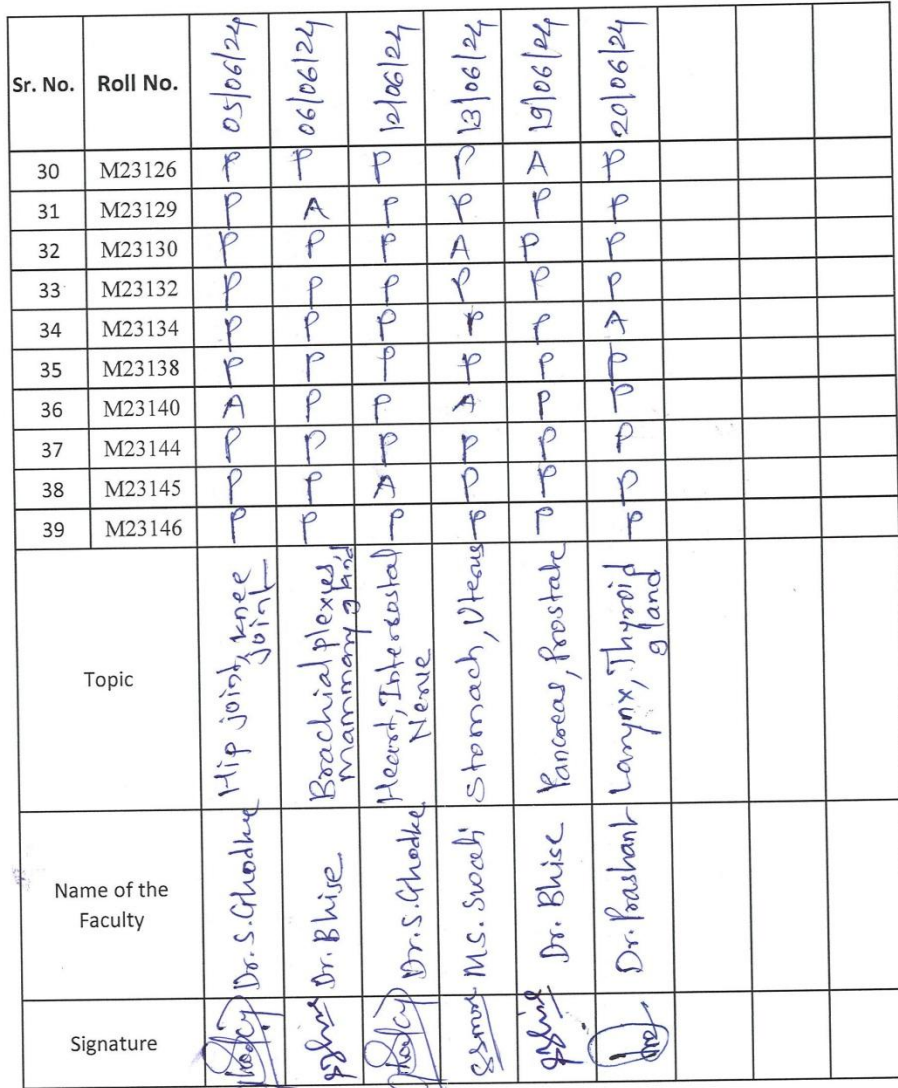 Sr. No. Roll No. 05/06/24 06/06/24 12/06/24 13/06/24 19/06/24 20/06/24
30 M23126 P P P P A P
31 M23129 P A P P P P
32 M23130 P P P A P P
33 M23132 P P P P P P
34 M23134 P P P P P A
35 M23138 P P P P P P
36 M23140 A P P A P P
37 M23144 P P P P P P
38 M23145 P P A P P P
39 M23146 P P P P P P
Topic
Hip joint, knee
joint
Brachial plexyes,
mammary gland
Heart, Intercostal
Nerve
Stomach, Uterus
Pancreas, Prostate
Larynx, Thyroid
gland
Name of the
Faculty
Dr. S. Ghodke
Dr. Bhise
Dr. S. Ghodke
M.S. Swati
Dr. Bhise
Dr. Prashant
Signature